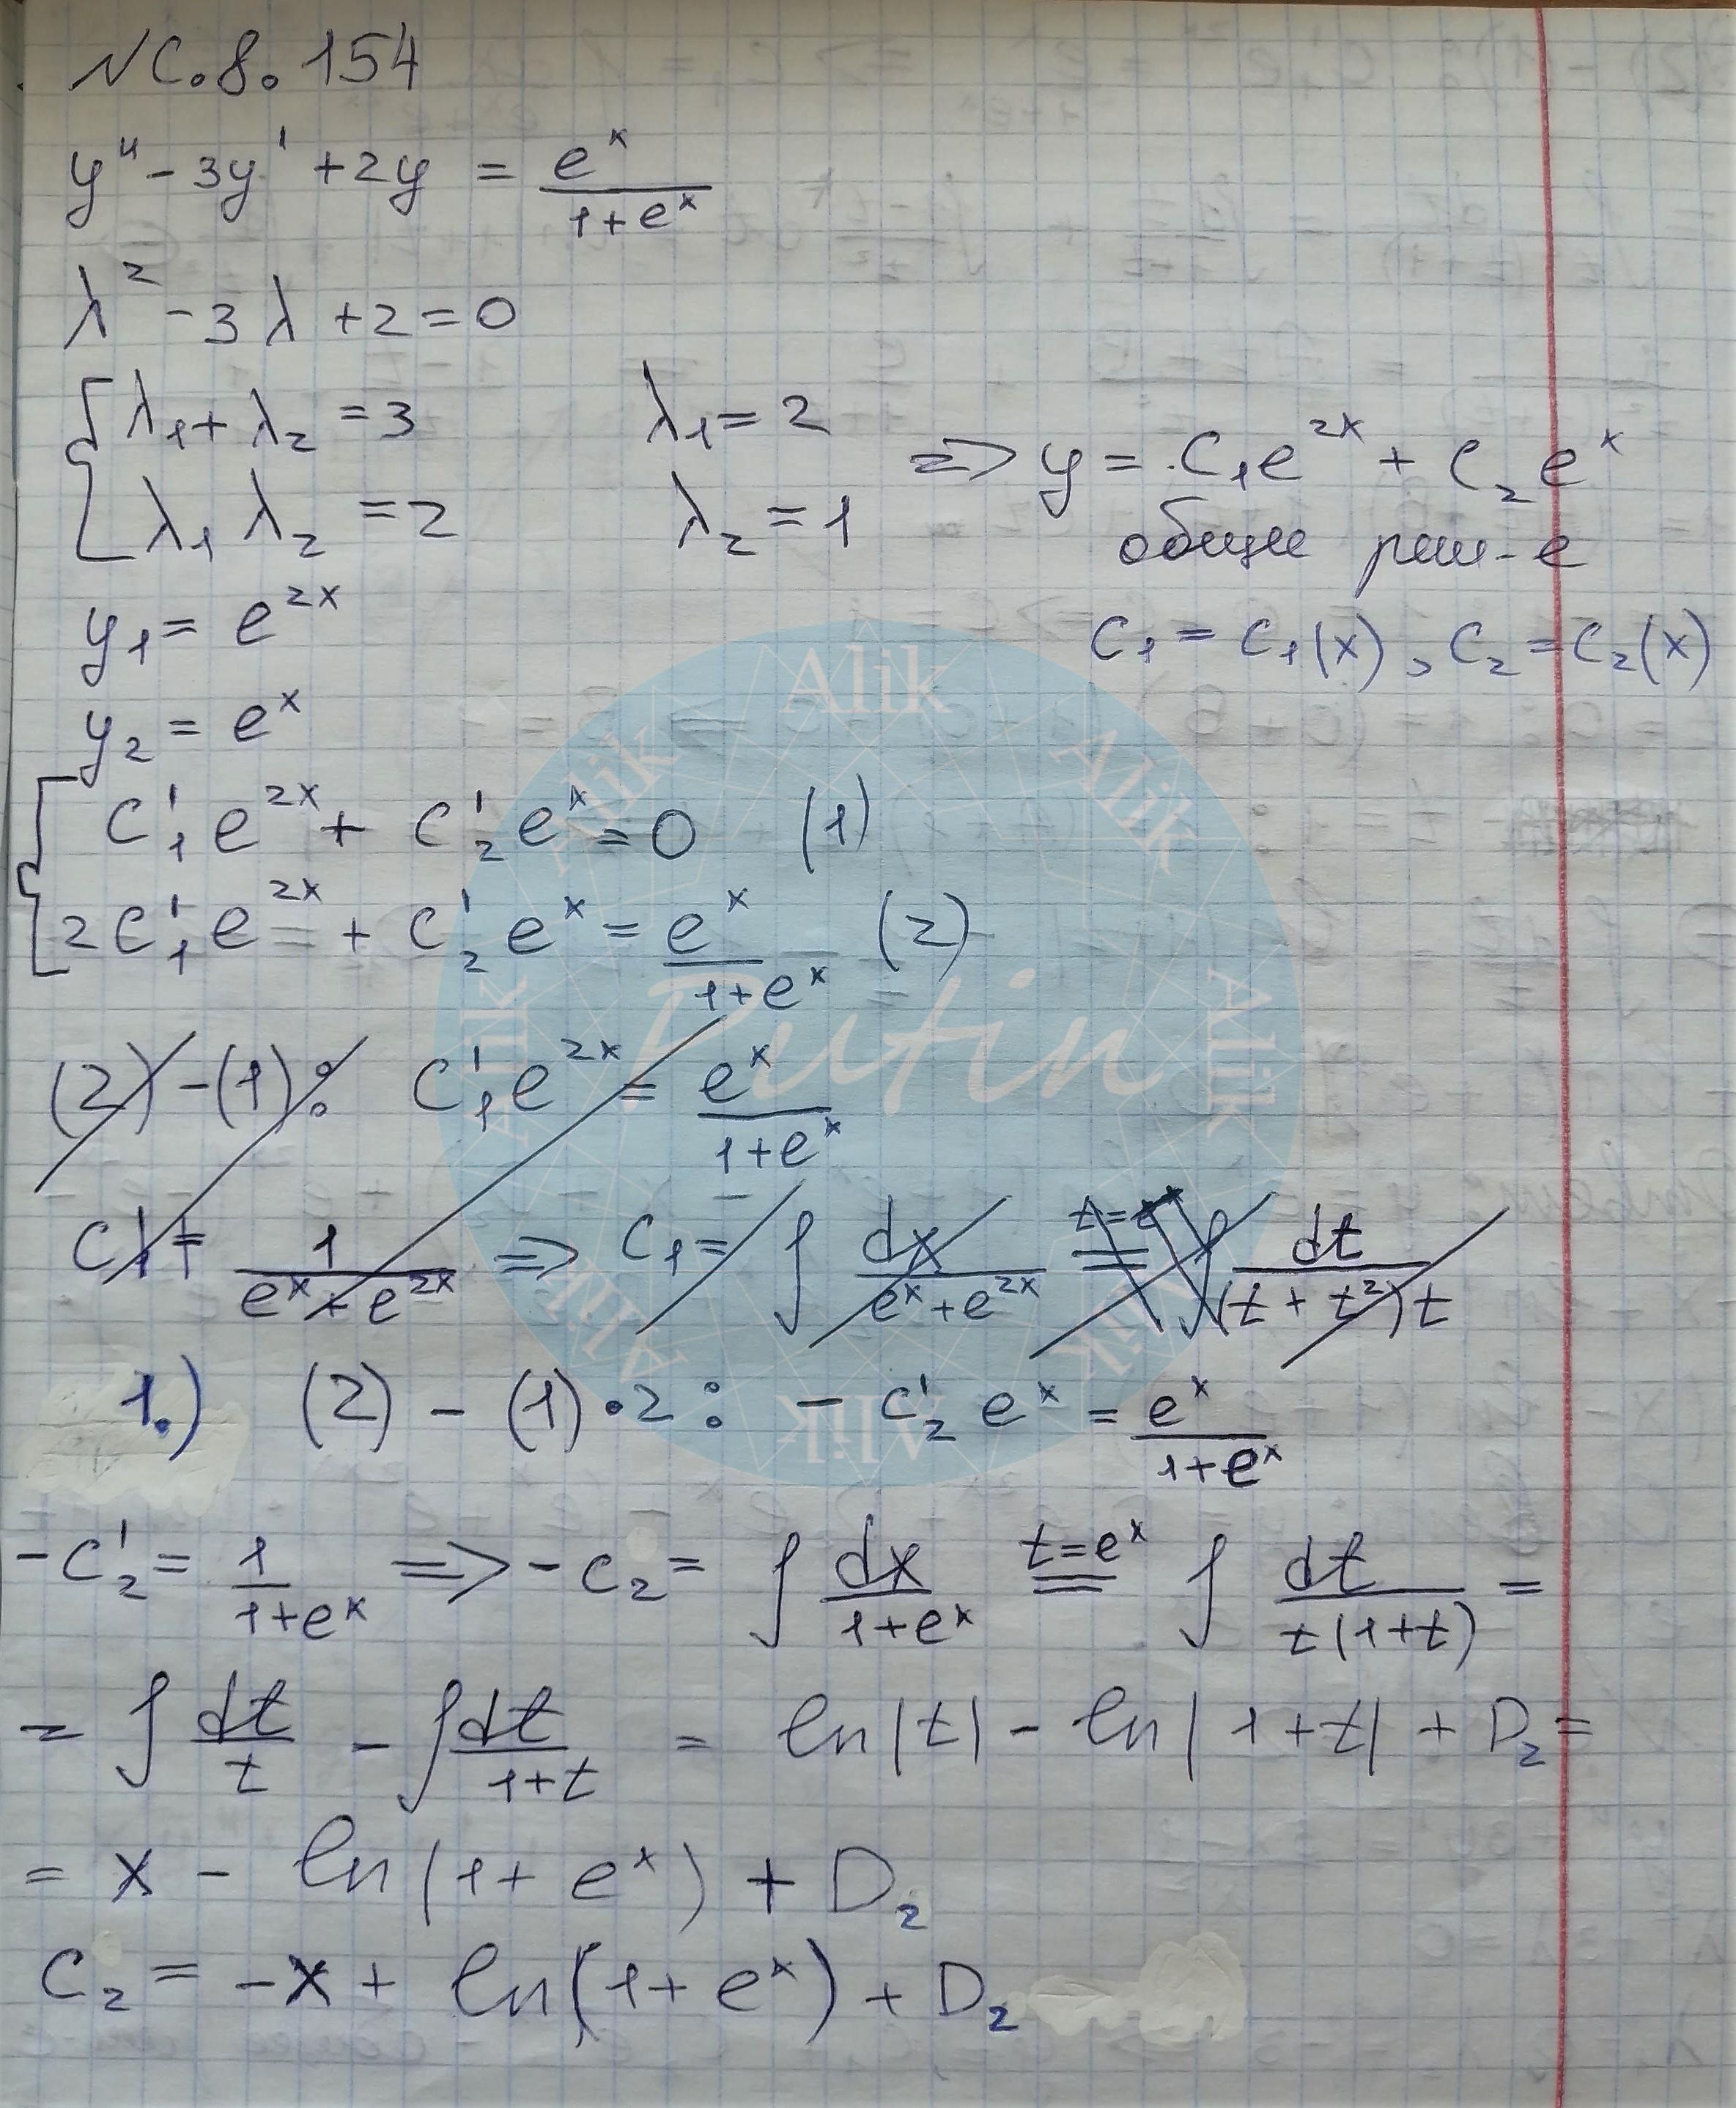 № C.8.154
y'' - 3y' + 2y = e^x / (1+e^x)
λ^2 - 3λ + 2 = 0
{ λ_1 + λ_2 = 3   λ_1 = 2
λ_1 λ_2 = 2   λ_2 = 1   => y = C_1 e^{2x} + C_2 e^x
общее реш-е
y_1 = e^{2x}   C_1 = C_1(x), C_2 = C_2(x)
y_2 = e^x
{ C'_1 e^{2x} + C'_2 e^x = 0 (1)
2C'_1 e^{2x} + C'_2 e^x = e^x / (1+e^x) (2)
(2) - (1): C'_1 e^{2x} = e^x / (1+e^x)
C'_1 = 1 / (e^x + e^{2x}) => C_1 = ∫ dx / (e^x + e^{2x}) t=e^x = ∫ dt / ((t + t^2) t)
1.) (2) - (1)·2: -C'_2 e^x = e^x / (1+e^x)
-C'_2 = 1 / (1+e^x) => -C_2 = ∫ dx / (1+e^x) t=e^x = ∫ dt / (t(1+t)) =
= ∫ dt/t - ∫ dt / (1+t) = ln|t| - ln|1+t| + D_2 =
= x - ln(1+e^x) + D_2
C_2 = -x + ln(1+e^x) + D_2
Alik
Alik
Alik
Alik
Alik
Alik
Alik
Alik
Putin